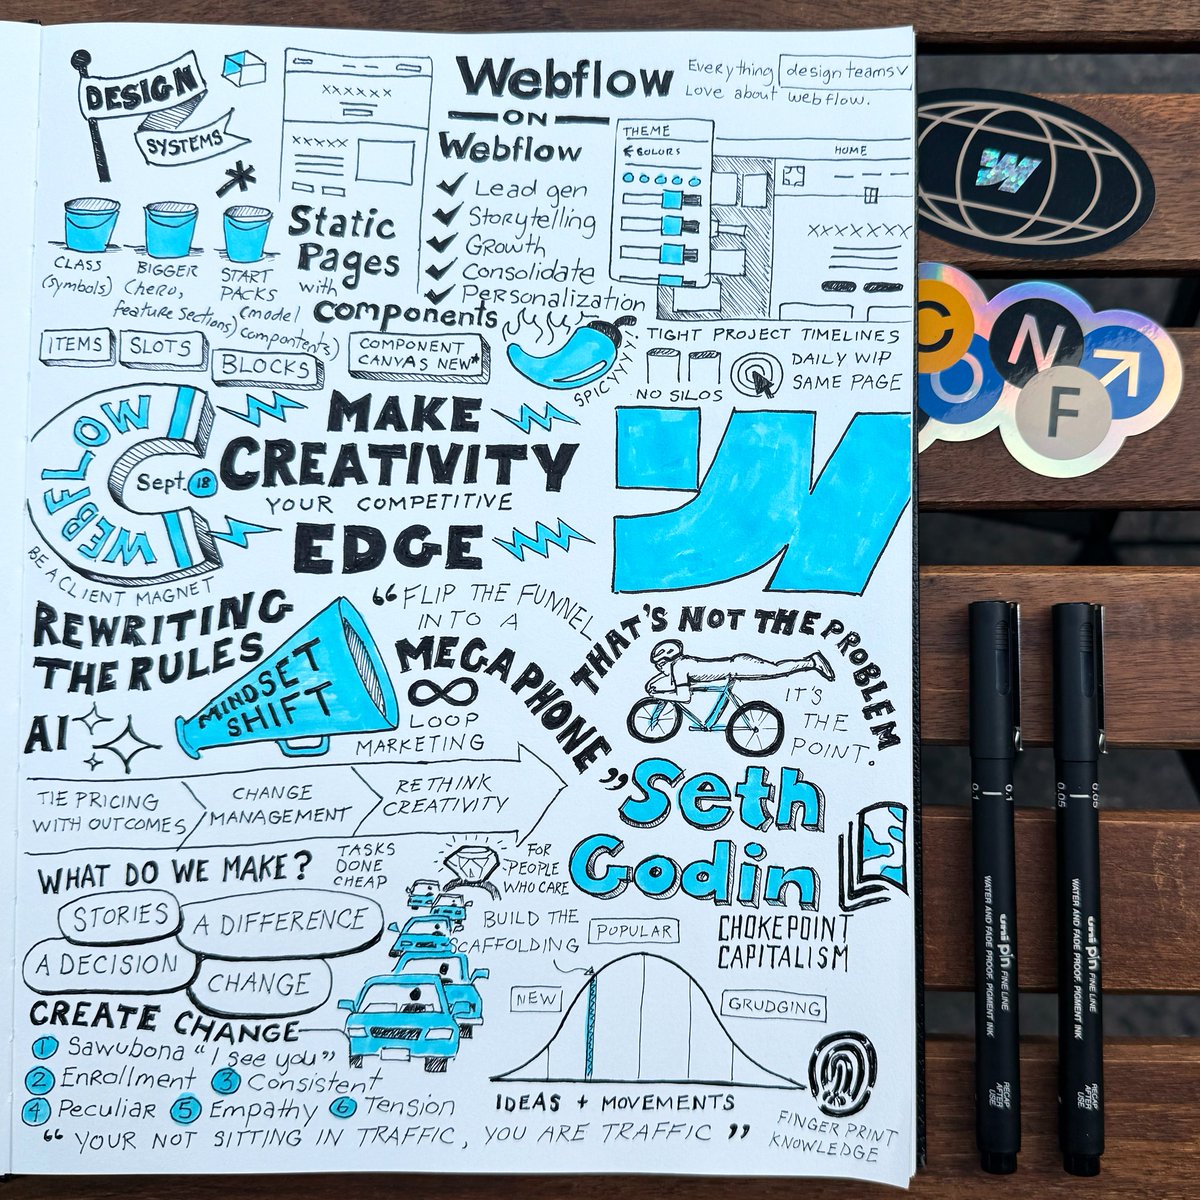 DESIGN
SYSTEMS
XXXXXX
XXXXX
Webflow
ON
Webflow
Everything design teams
Love about webflow.
Lead gen
Storytelling
Growth
Consolidate
Personalization
THEME
COLORS
HOME
XXXXXXX
CLASS
(symbols)
BIGGER
(hero,
feature sections)
START
PACKS
(model
components)
Static
Pages
with
components
ITEMS
SLOTS
BLOCKS
COMPONENT
CANVAS NEW*
SPICYYY!
TIGHT PROJECT TIMELINES
NO SILOS
DAILY WIP
SAME PAGE
WEBFLOW
Sept. 18
WEBFLOW
BE A CLIENT MAGNET
MAKE
CREATIVITY
YOUR COMPETITIVE
EDGE
REWRITING
THE RULES
MINDSET
SHIFT
AI
“FLIP THE FUNNEL
INTO A
MEGAPHONE”
LOOP
MARKETING
THAT'S NOT THE PROBLEM
IT'S
THE
POINT.
TIE PRICING
WITH OUTCOMES
CHANGE
MANAGEMENT
RETHINK
CREATIVITY
Seth
Godin
WHAT DO WE MAKE?
STORIES
A DIFFERENCE
A DECISION
CHANGE
TASKS
DONE
CHEAP
FOR
PEOPLE
WHO CARE
BUILD THE
SCAFFOLDING
CHOKEPOINT
CAPITALISM
POPULAR
NEW
GRUDGING
IDEAS + MOVEMENTS
CREATE CHANGE
1 Sawubona “I see you”
2 Enrollment 3 Consistent
4 Peculiar 5 Empathy 6 Tension
“YOUR NOT SITTING IN TRAFFIC, YOU ARE TRAFFIC”
FINGER PRINT
KNOWLEDGE
C
N
F
0.1 0.1
uni pin FINE LINE
WATER AND FADE PROOF, PIGMENT INK
RECAP
AFTER
USE
0.05 0.05
uni pin FINE LINE
WATER AND FADE PROOF, PIGMENT INK
RECAP
AFTER
USE